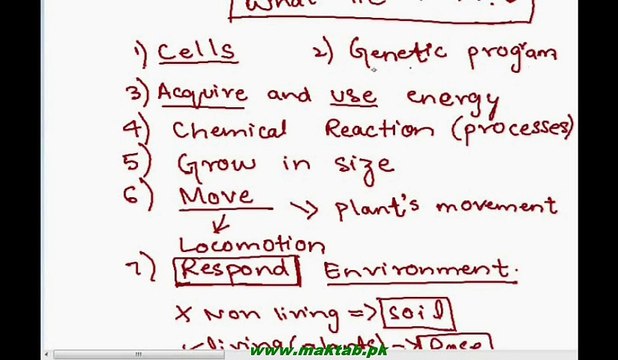 What
1) Cells 2) Genetic program
3) Acquire and use energy
4) Chemical Reaction (processes)
5) Grow in size
6) Move → plant's movement
Locomotion
7) Respond Environment.
X Non living => soil
living (plants) →
www.maktab.pk